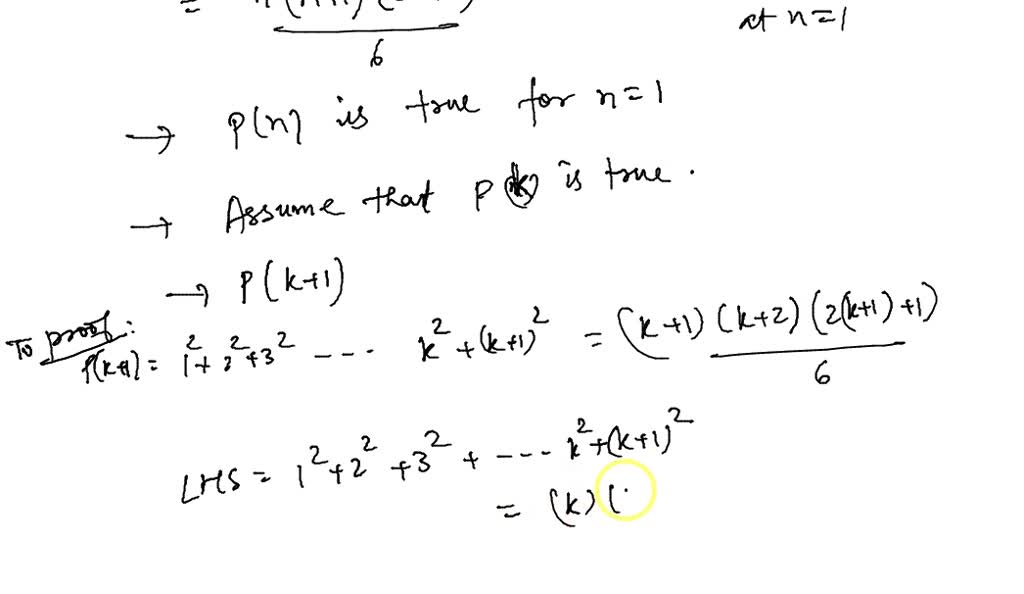 =
6
at n=1
→ P(n) is true for n=1
→ Assume that P(k) is true.
→ P(k+1)
To proof:
P(k+1) = 1²+2²+3² ---- k²+(k+1)² = (k+1)(k+2)(2(k+1)+1)
6
LHS = 1²+2²+3²+ ---- k²+(k+1)²
= (k)(